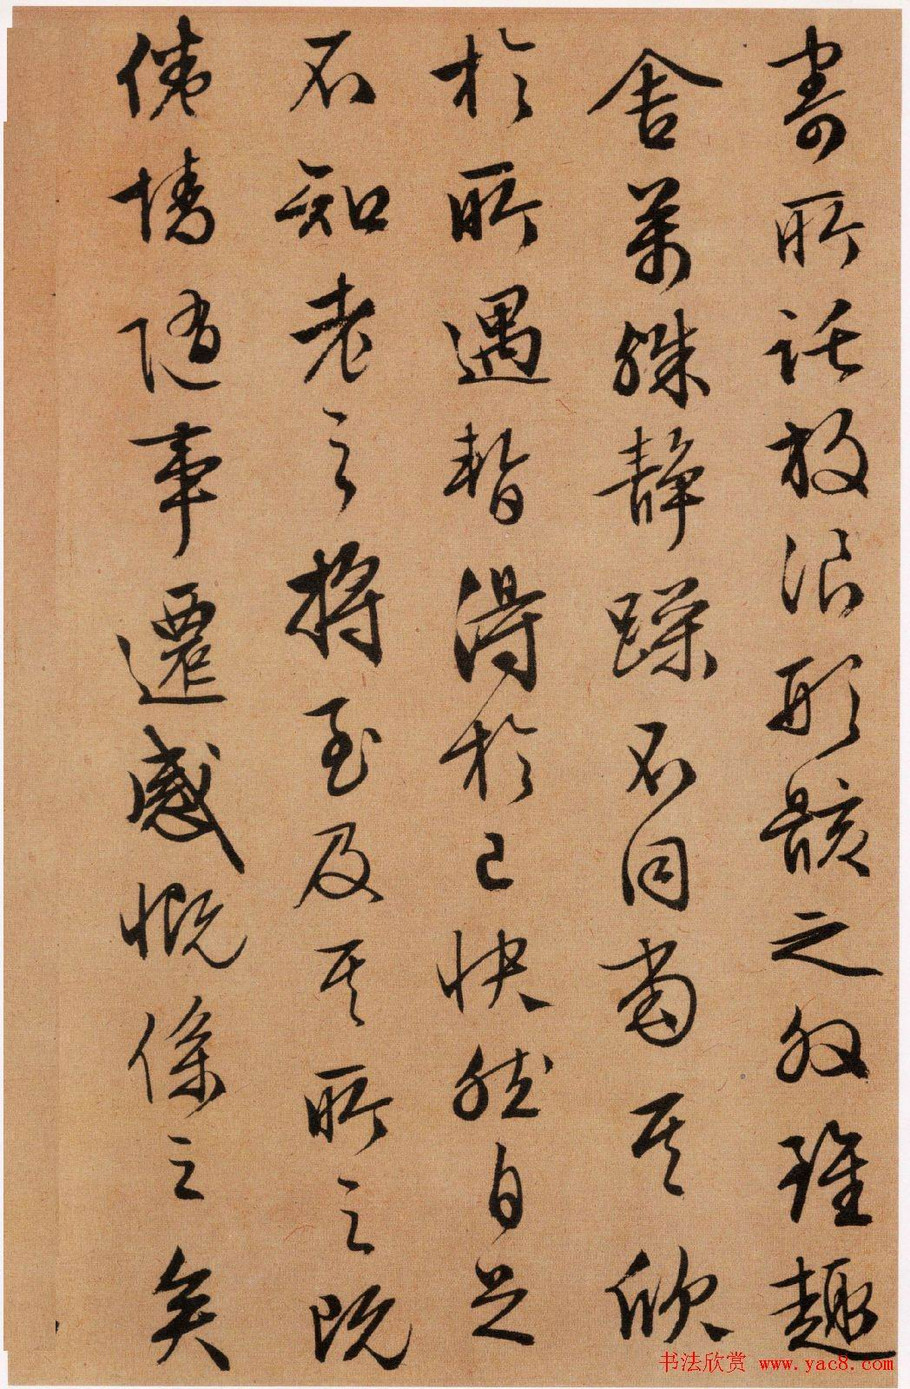 寄所託放浪形骸之外雖趣
舍萬殊静躁不同當其欣
於所遇暫得於己快然自足
不知老之將至及其所之既
倦情隨事遷感慨係之矣
书法欣赏 www.yac8.com